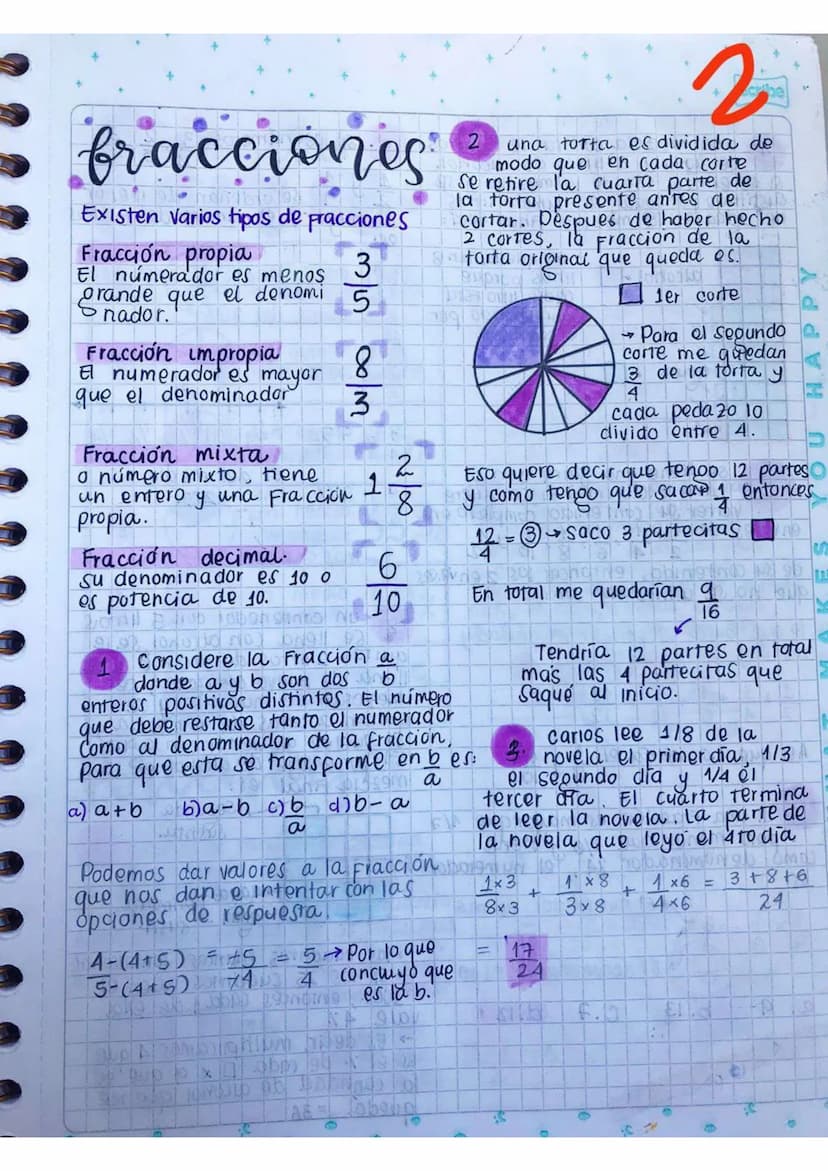 2
scribe
fracciones
Existen varios tipos de fracciones
Fracción propia
El númerador es menos
grande que el denomi
nador.
3
5
Fracción impropia
El numerador es mayor
que el denominador
8
3
Fracción mixta
o número mixto, tiene
un entero y una Fracción
propia.
1 2
8
Fracción decimal.
su denominador es 10 o
es potencia de 10.
6
10
1 Considere la Fracción a
b
donde a y b son dos
enteros positivos distintos. El número
que debe restarse tanto el numerador
como al denominador de la fracción,
para que esta se transforme en b es:
a
a) a+b b) a-b c) b d) b- a
a
Podemos dar valores a la fracción
que nos dan e intentar con las
opciones de respuesta.
4-(4+5) = -5 = 5 → Por lo que
5-(4+5) -4 4 concluyo que
es la b.
2 una torta es dividida de
modo que en cada corte
se retire la cuarta parte de
la torta presente antes de
cortar. Déspues de haber hecho
2 cortes, la fracción de la
torta original que queda es.
1er corte
→ Para el segundo
corte me quedan
3 de la torta y
4
cada pedazo lo
divido entre 4.
Eso quiere decir que tengo 12 partes
y como tengo que sacar 1 entonces
4
12 = 3 → saco 3 partecitas
4
En total me quedarían 9
16
Tendría 12 partes en total
mais las 4 partecitas que
saqué al inicio.
3. Carlos lee 1/8 de la
novela el primer día, 1/3
el segundo día y 1/4 el
tercer día. El cuarto termina
de leer la novela. La parte de
la novela que leyo el 4to día
1x3 + 1x8 + 1x6 = 3+8+6
8x3 3x8 4x6 24
= 17
24
MAKES YOU HAPPY